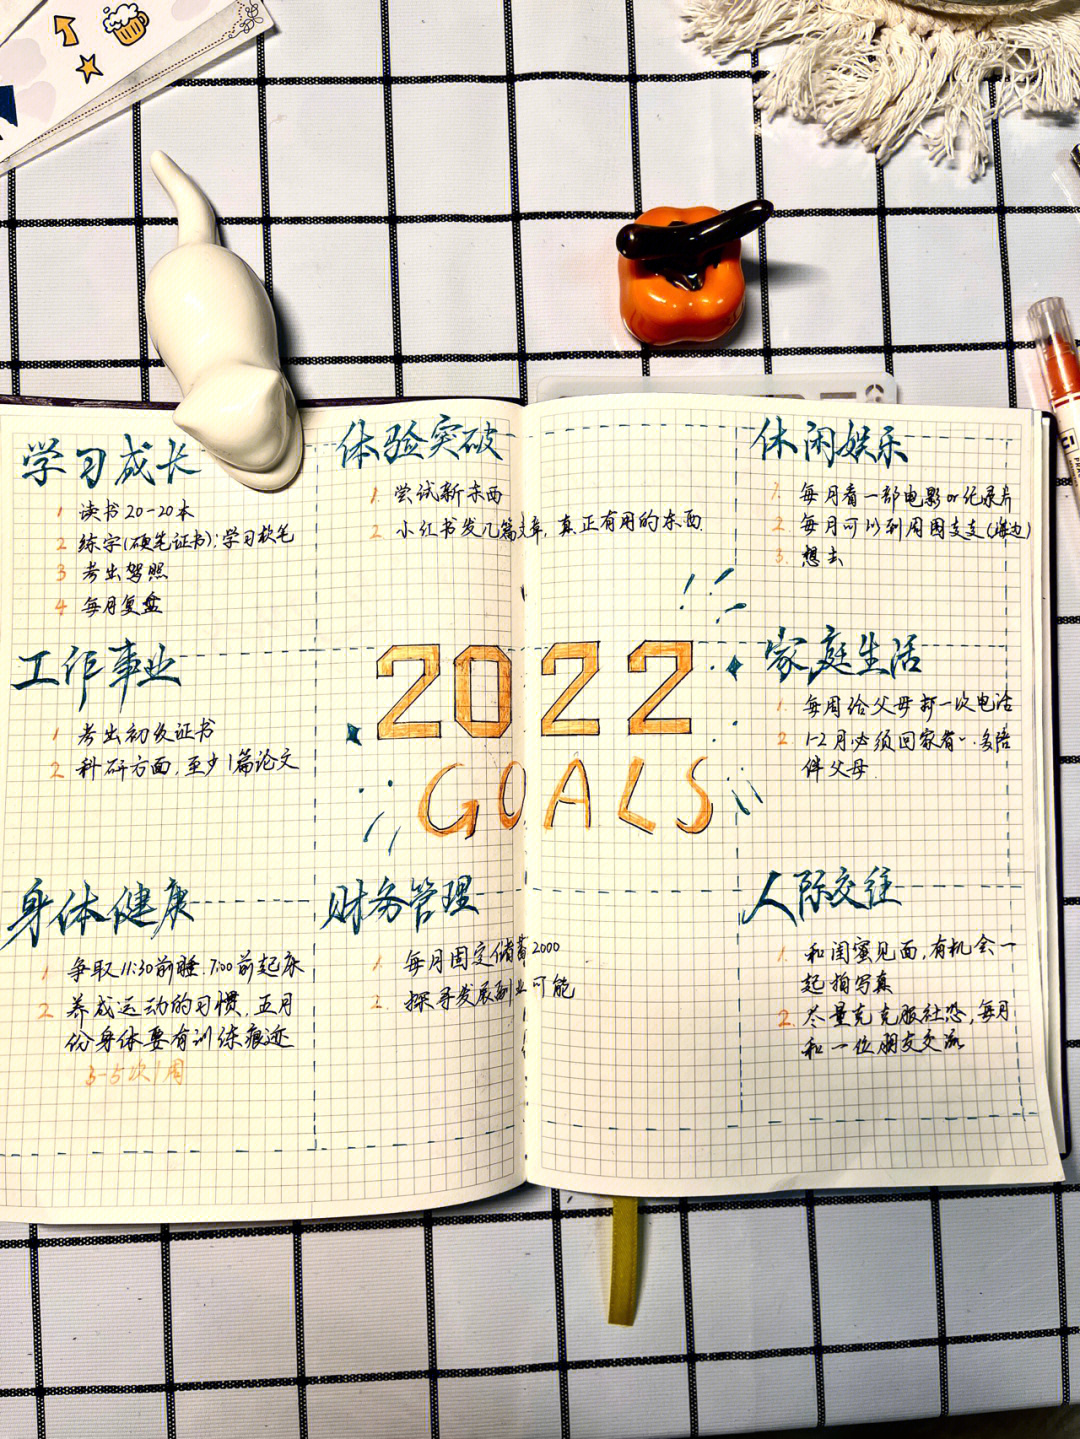 学习成长
1 读书20-20本
2 练字(硬笔证书);学习软笔
3 考出驾照
4 每月复盘
体验突破
1. 尝试新东西
2 小红书发几篇文章，真正有用的东西.
休闲娱乐
1. 每月看一部电影or纪录片
2 每月可以到周围(海边)
3. 想去
工作事业
1 考出初级证书
2 科研方面,至少1篇论文
2022
GOALS
家庭生活
1. 每周给父母都一次电话
2. 1-2月必须回家有一.多陪
伴父母.
身体健康
1 争取11:30前睡.7:00前起床
2 养成运动的习惯,五月
份身体要有训练痕迹
3-5次/周
财务管理
1. 每月固定储蓄2000
2. 探寻发展副业可能
人际交往
1. 和闺蜜见面,有机会一
起拍写真
2. 尽量克克服社恐,每月
和一位朋友交流